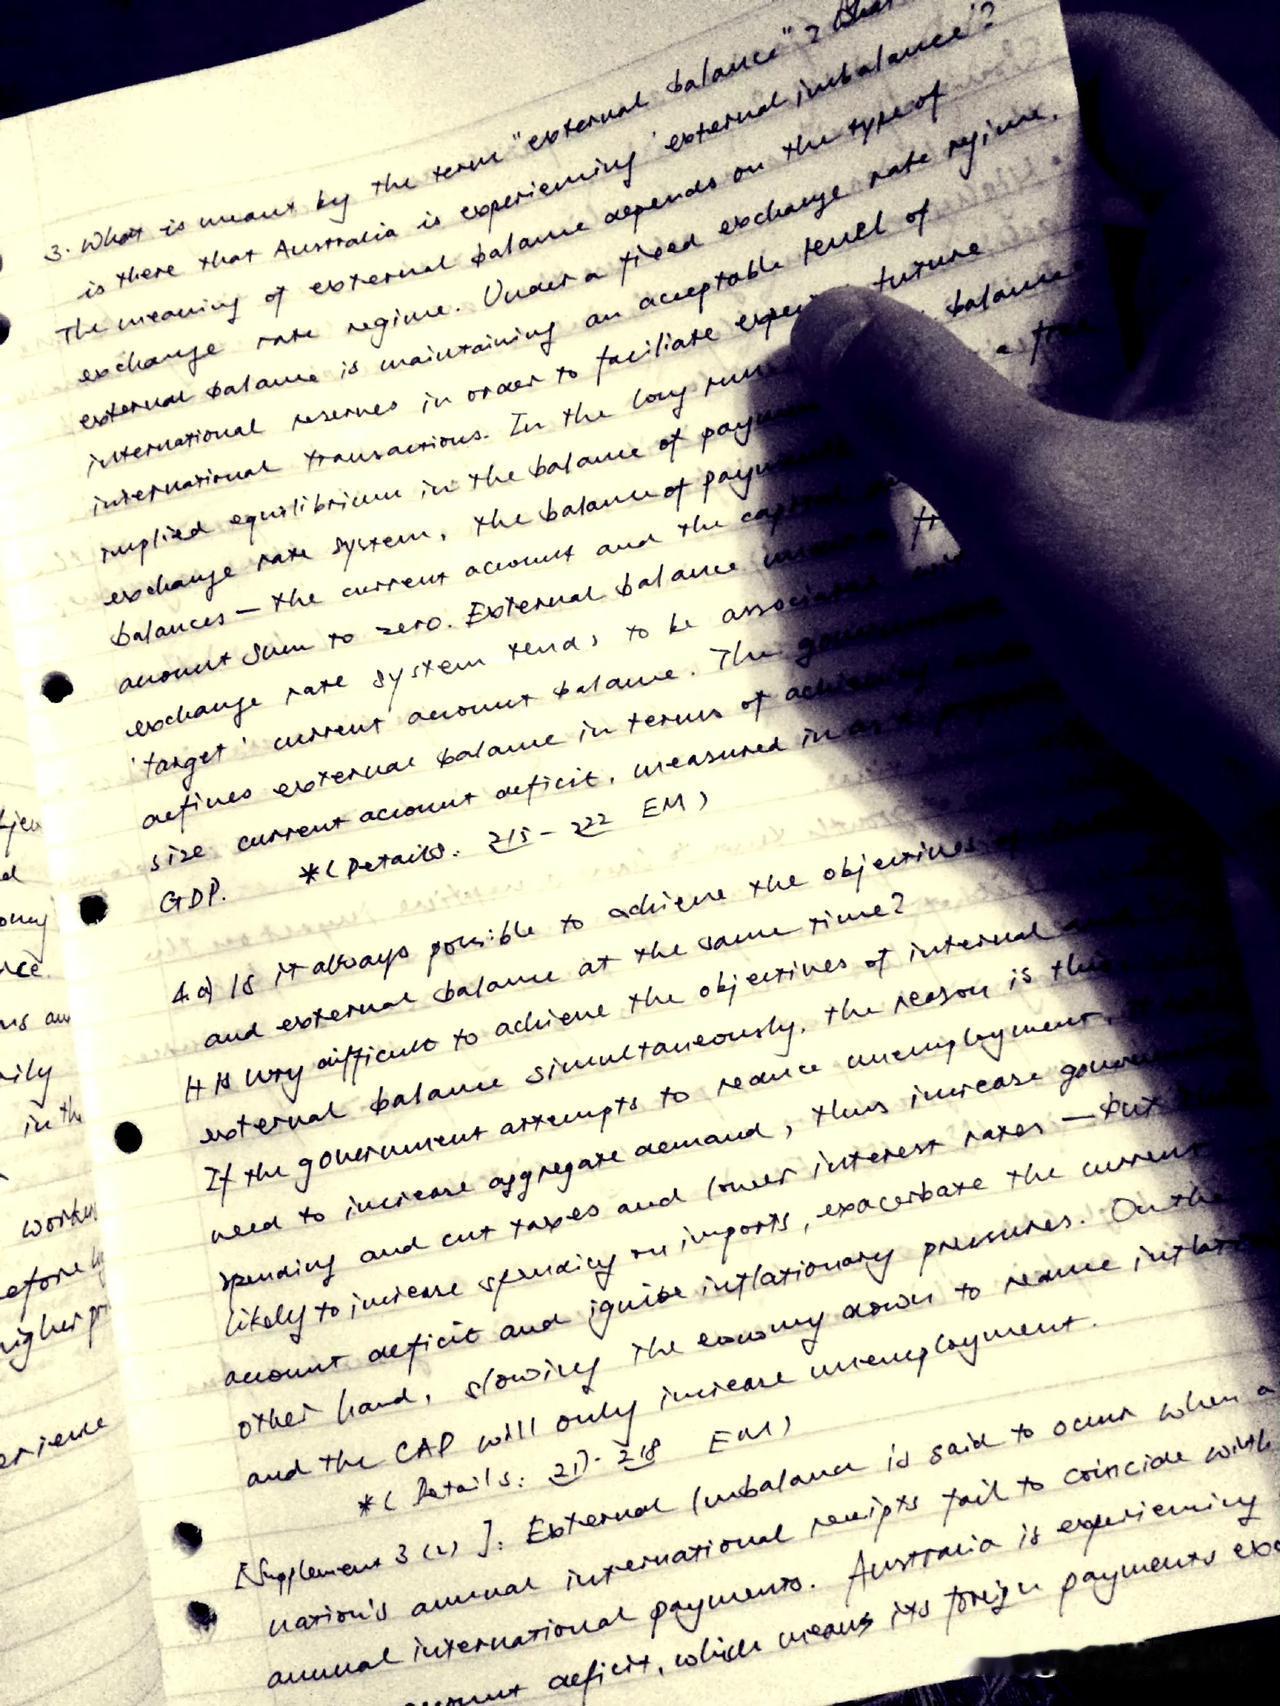 3. What is meant by the term "external balance"? What
is there that Australia is experiencing 'external imbalance'?
The meaning of external balance depends on the type of
exchange rate regime. Under a fixed exchange rate regime,
external balance is maintaining an acceptable level of
international reserves in order to faciliate future
international transactions. In the long run balance
implied equilibrium in the balance of a free
exchange rate system, the balance of payments
balances – the current account and the capital
account sum to zero. External balance under a
exchange rate system tends to be associated
'target' current account balance. The government
defines external balance in terms of achieving
size current account deficit, measured in as a
GDP. *(Details: 215 - 222 EM)
4.a) Is it always possible to achieve the objectives of
and external balance at the same time?
It is very difficult to achieve the objectives of internal and
external balance simultaneously, the reason is that
If the government attempts to reduce unemployment, it
need to increase aggregate demand, thus increase government
spending and cut taxes and lower interest rates – but
likely to increase spending on imports, exacerbate the current
account deficit and ignite inflationary pressures. On the
other hand, slowing the economy down to reduce inflation
and the CAP will only increase unemployment.
*( Details: 217 - 218 EM)
[Supplement 3 (2) ]: External imbalance is said to occur when a
nation's annual international receipts fail to coincide with
annual international payments. Australia is experiencing
account deficit, which means its foreign payments
jen
d
omy
ice.
ns
ily
in th
worke
efore
higher pr
erience